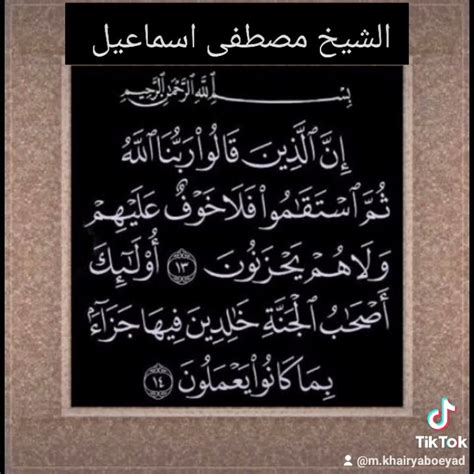 الشيخ مصطفى اسماعيل
بِسْمِ اللَّهِ الرَّحْمَٰنِ الرَّحِيمِ
إِنَّ الَّذِينَ قَالُوا رَبُّنَا اللَّهُ
ثُمَّ اسْتَقَامُوا فَلَا خَوْفٌ عَلَيْهِمْ
وَلَا هُمْ يَحْزَنُونَ ١٣ أُولَٰئِكَ
أَصْحَابُ الْجَنَّةِ خَالِدِينَ فِيهَا جَزَاءً
بِمَا كَانُوا يَعْمَلُونَ ١٤
TikTok
@m.khairyaboeyad